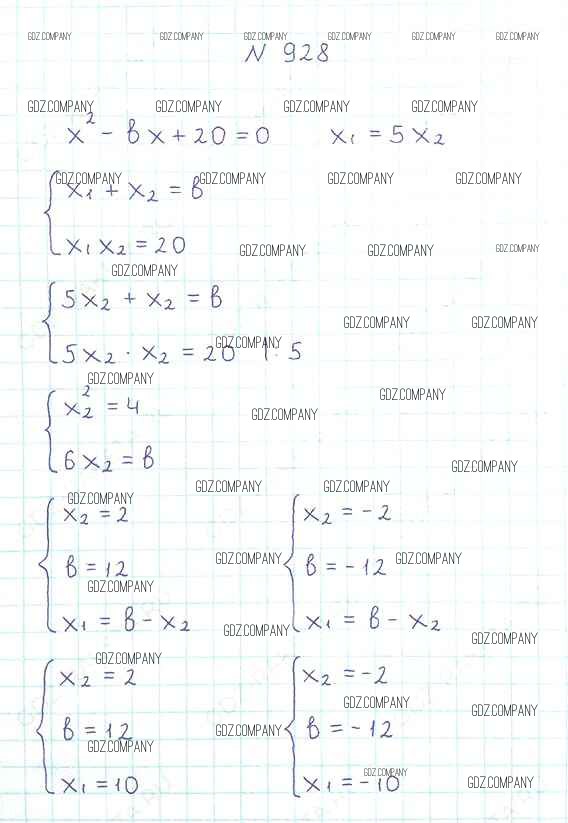 GDZ.COMPANY GDZ.COMPANY GDZ.COMPANY GDZ.COMPANY GDZ.COMPANY GDZ.COMPANY
N 928
GDZ.COMPANY GDZ.COMPANY GDZ.COMPANY GDZ.COMPANY
x² - вx + 20 = 0 x₁ = 5x₂
GDZ.COMPANY GDZ.COMPANY GDZ.COMPANY GDZ.COMPANY
x₁ + x₂ = в
x₁x₂ = 20
GDZ.COMPANY GDZ.COMPANY GDZ.COMPANY
GDZ.COMPANY
5x₂ + x₂ = в
GDZ.COMPANY GDZ.COMPANY
GDZ.COMPANY
5x₂ · x₂ = 20 | : 5
GDZ.COMPANY
GDZ.COMPANY
x₂² = 4
GDZ.COMPANY
6x₂ = в
GDZ.COMPANY
GDZ.COMPANY GDZ.COMPANY
GDZ.COMPANY
x₂ = 2 x₂ = -2
GDZ.COMPANY GDZ.COMPANY
в = 12 в = -12
GDZ.COMPANY
x₁ = в - x₂ x₁ = в - x₂
GDZ.COMPANY GDZ.COMPANY
GDZ.COMPANY
x₂ = 2 x₂ = -2
GDZ.COMPANY GDZ.COMPANY
в = 12 в = -12
GDZ.COMPANY GDZ.COMPANY
GDZ.COMPANY GDZ.COMPANY
x₁ = 10 x₁ = -10